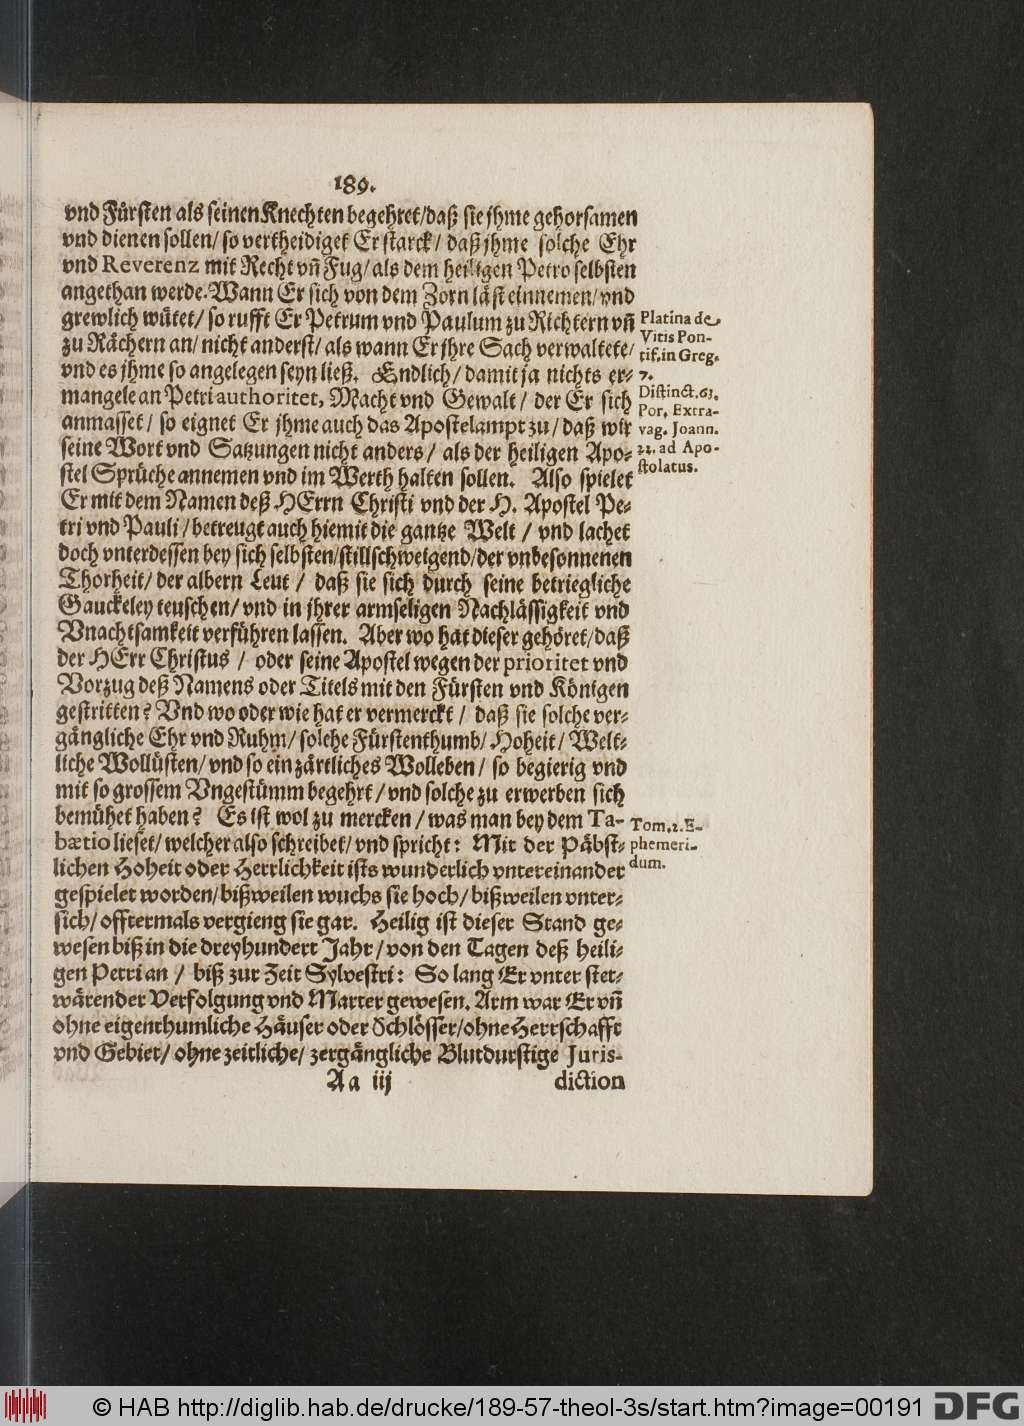 189.
vnd Fürsten als seinen Knechten begehret/daß sie jhme gehorsamen
vnd dienen sollen/ so vertheidiget Er starck/ daß jhme solche Ehr
vnd Reverenz mit Recht vñ Fug/ als dem heiligen Petro selbsten
angethan werde. Wann Er sich von dem Zorn läst einnemen/ vnd
grewlich wütet/ so rufft Er Petrum vnd Paulum zu Richtern vñ
zu Rächern an/ nicht anderst/ als wann Er jhre Sach verwaltete/
vnd es jhme so angelegen seyn ließ. Endlich/ damit ja nichts er-
mangele an Petri authoritet, Macht vnd Gewalt/ der Er sich
anmasset/ so eignet Er jhme auch das Apostelampt zu/ daß wir
seine Wort vnd Satzungen nicht anders/ als der heiligen Apo-
stel Sprüche annemen vnd im Werth halten sollen. Also spielet
Er mit dem Namen deß HErrn Christi vnd der H. Apostel Pe-
tri vnd Pauli/ betreugt auch hiemit die gantze Welt / vnd lachet
doch vnterdessen bey sich selbsten/stillschweigend/der vnbesonnenen
Thorheit/ der albern Leut / daß sie sich durch seine betriegliche
Gauckeley teuschen/ vnd in jhrer armseligen Nachlässigkeit vnd
Vnachtsamkeit verführen lassen. Aber wo hat dieser gehöret/daß
der HErr Christus / oder seine Apostel wegen der prioritet vnd
Vorzug deß Namens oder Titels mit den Fürsten vnd Königen
gestritten? Vnd wo oder wie hat er vermerckt / daß sie solche ver-
gängliche Ehr vnd Ruhm/ solche Fürstenthumb/ Hoheit/ Welt-
liche Wollüsten/ vnd so ein zärtliches Wolleben/ so begierig vnd
mit so grossem Vngestümm begehrt/ vnd solche zu erwerben sich
bemühet haben? Es ist wol zu mercken/ was man bey dem Ta-
bætio lieset/ welcher also schreibet/ vnd spricht: Mit der Päbst-
lichen Hoheit oder Herrlichkeit ists wunderlich vntereinander
gespielet worden/ bißweilen wuchs sie hoch/ bißweilen vnter-
sich/ offtermals vergieng sie gar. Heilig ist dieser Stand ge-
wesen biß in die dreyhundert Jahr/ von den Tagen deß heili-
gen Petri an / biß zur Zeit Sylvestri: So lang Er vnter stet-
wärender Verfolgung vnd Marter gewesen. Arm war Er vñ
ohne eigenthumliche Häuser oder Schlösser/ohne Herrschafft
vnd Gebiet/ ohne zeitliche/ zergängliche Blutdurstige Juris-
Aa iij diction
Platina de
Vitis Pon-
tif. in Greg.
7.
Distinct. 63.
Por. Extra-
vag. Joann.
22. ad Apo-
stolatus.
Tom. 2. E-
phemeri-
dum.
© HAB http://diglib.hab.de/drucke/189-57-theol-3s/start.htm?image=00191
DFG